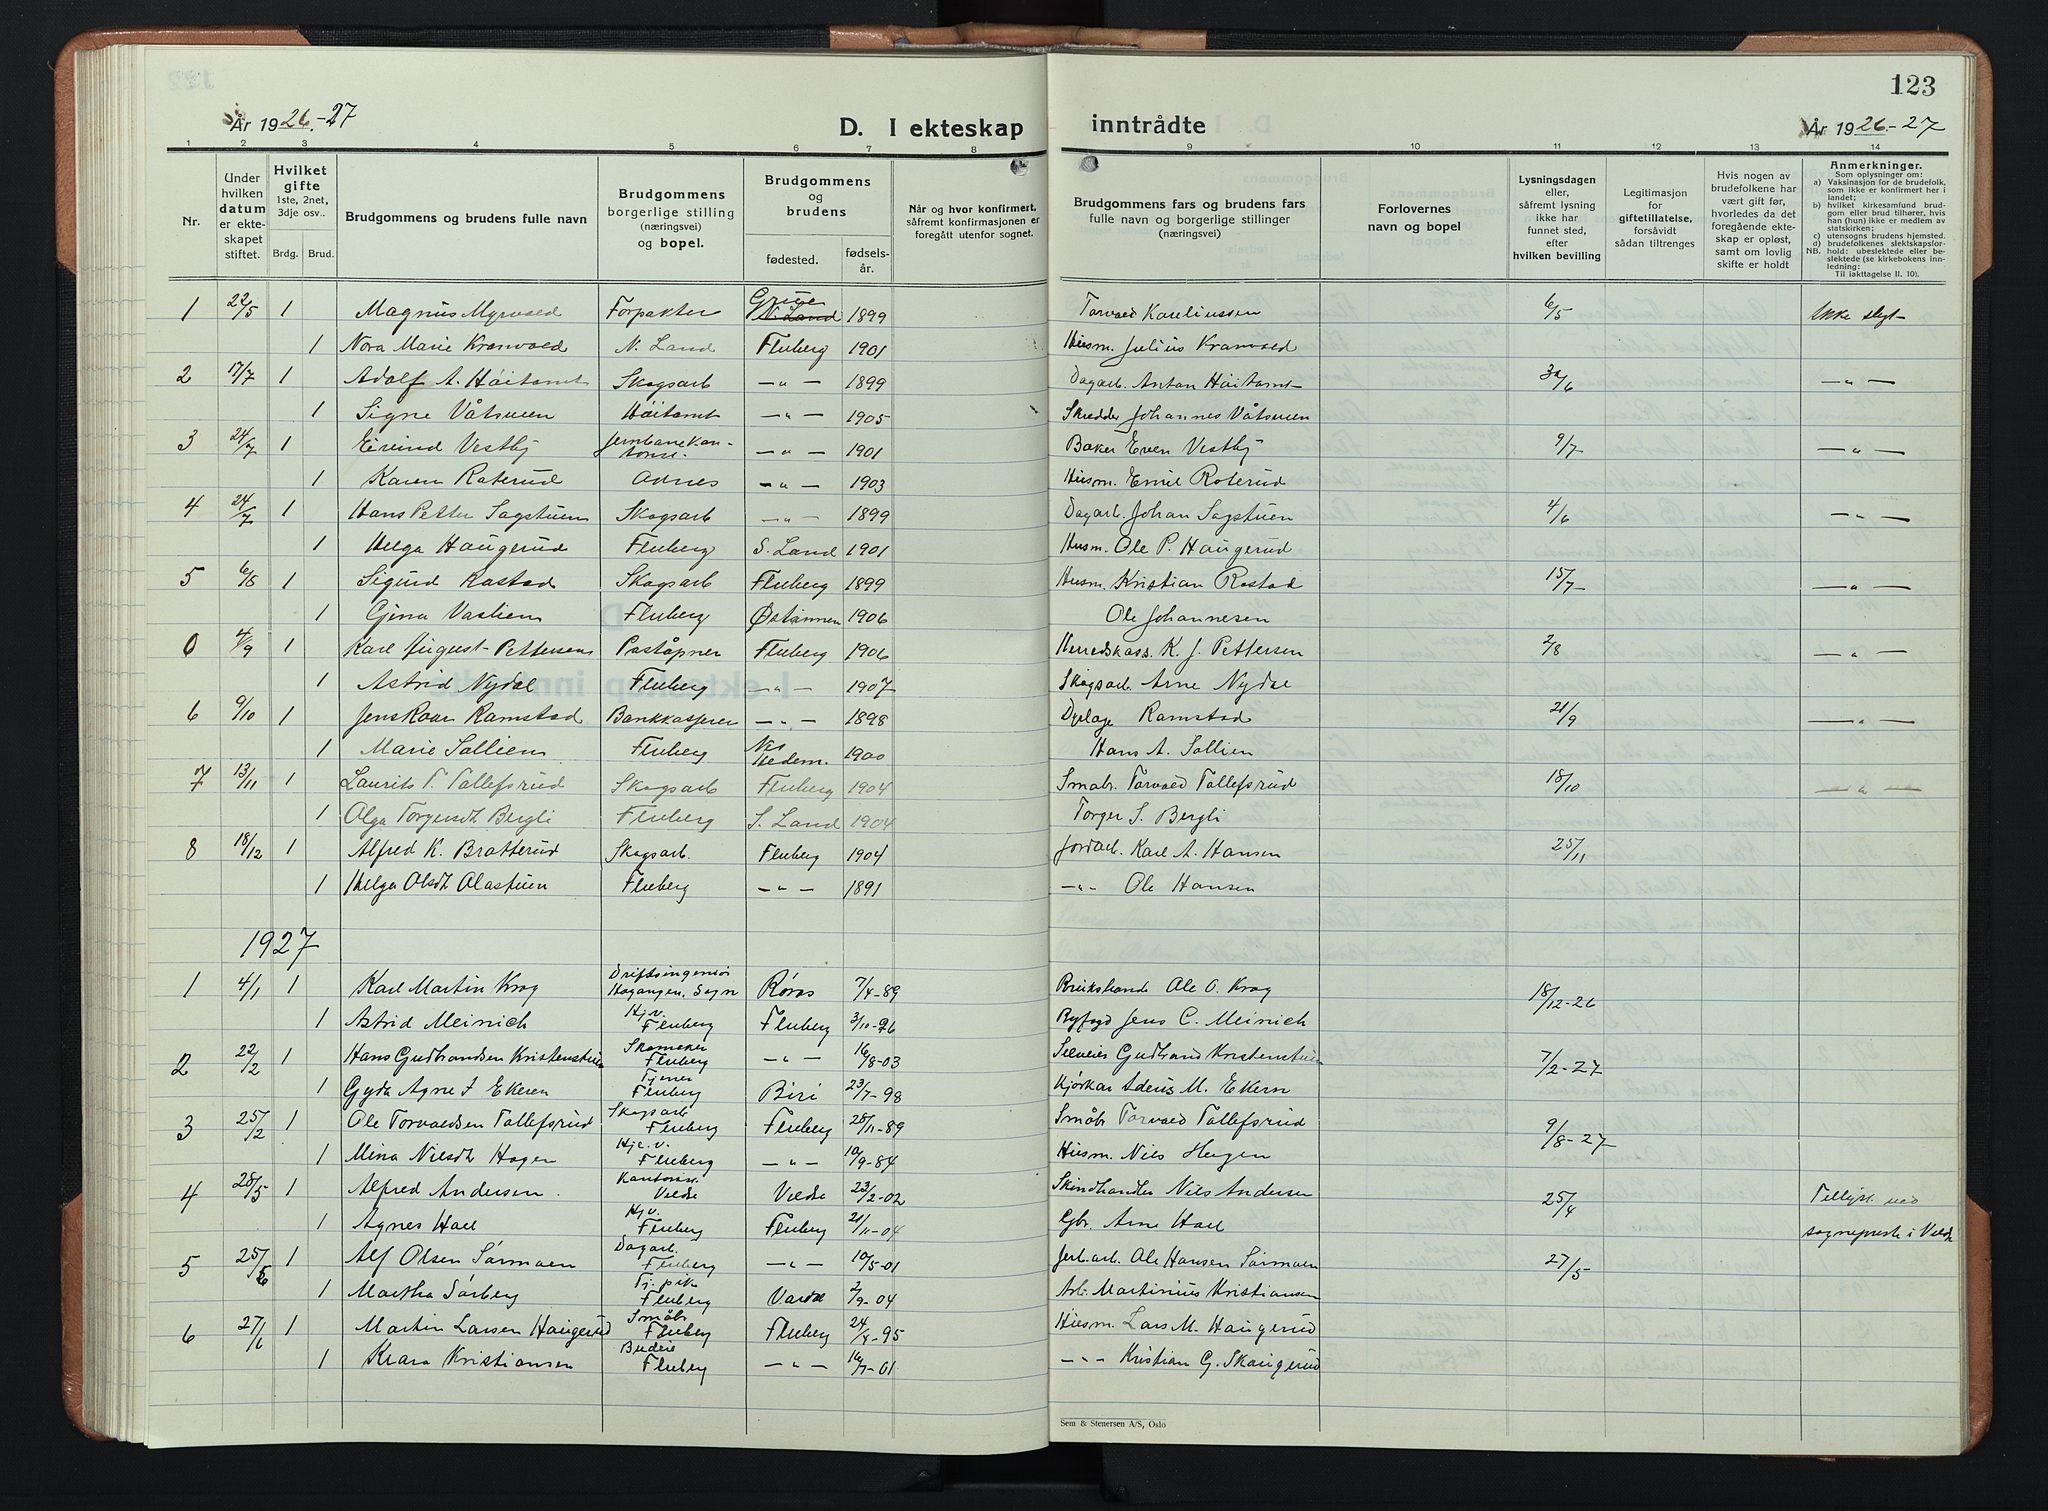 123
År 1926-27 D. I ekteskap inntrådte År 1926-27
1 2 3 4 5 6 7 8 9 10 11 12 13 14
Nr.
Under hvilken datum er ekteskapet stiftet.
Hvilket gifte 1ste, 2net, 3dje osv.. Brdg. Brud.
Brudgommens og brudens fulle navn
Brudgommens borgerlige stilling (næringsvei) og bopel.
Brudgommens og brudens fødested. fødselsår.
Når og hvor konfirmert, såfremt konfirmasjonen er foregått utenfor sognet.
Brudgommens fars og brudens fars fulle navn og borgerlige stillinger (næringsvei)
Forlovernes navn og bopel
Lysningsdagen eller, såfremt lysning ikke har funnet sted, efter hvilken bevilling
Legitimasjon for giftetillatelse, forsåvidt sådan tiltrenges
Hvis nogen av brudefolkene har vært gift før, hvorledes da det foregående ekteskap er opløst, samt om lovlig skifte er holdt
Anmerkninger.
Som oplysninger om:
a) Vaksinasjon for de brudefolk, som ikke er konfirmert her i landet;
b) hvilket kirkesamfund brudgom eller brud tilhører, hvis han (hun) ikke er medlem av statskirken;
c) utensogns brudens hjemsted.
d) brudefolkenes slektskapsforhold: ubeslektede eller beslektede (se kirkebokens innledning:
NB.
Til iakttagelse II. 10).
1 22/5 1 Magnus Myrvold Forpakter Grue N. Land 1899 Torvald Karliussen 6/5 Ikke slegt
1 Nora Marie Kranvold N. Land Fluberg 1901 Husm. Julius Kranvold
2 17/7 1 Adolf A. Høitomt Skogsarb —"— 1899 Dagarb. Anton Høitomt 30/6 —"—
1 Signe Våtsveen Høitomt —"— 1905 Skredder Johannes Våtsveen
3 24/7 1 Eivind Vestby Jernbanekontorn. —"— 1901 Baker Even Vestby 9/7 —"—
1 Karen Roterud Odnes —"— 1903 Husm. Emil Roterud
4 24/7 1 Hans Petter Sagstuen Skogsarb —"— 1899 Dagarb. Johan Sagstuen 4/6 —"—
1 Helga Haugerud Fluberg S. Land 1901 Husm. Ole P. Haugerud
5 6/8 1 Sigurd Rostad Skogsarb Fluberg 1899 Husm. Kristian Rostad 15/7 —"—
1 Gjina Vaslien Fluberg Østsinnen 1906 Ole Johannesen
0 4/9 1 Karl August Pettersen Poståpner Fluberg 1906 Herredskass. K. J. Pettersen 2/8 —"—
1 Astrid Nydal Fluberg —"— 1907 Skogsarb. Arne Nydal
6 9/10 1 Jens Roar Ramstad Bankkasserer —"— 1898 Dyrlæge Ramstad 21/9 —"—
1 Marie Sollien Fluberg Nes Hedem. 1900 Hans A. Sollien
7 13/11 1 Laurits T. Tollefsrud Skogsarb Fluberg 1904 Småbr. Torvald Tollefsrud 18/10 —"—
1 Olga Torgersdt Bergli Fluberg S. Land 1904 Torger S. Bergli
8 18/12 1 Alfred K. Bratterud Skogsarb. Fluberg 1904 Jordarb. Karl A. Hansen 25/11
1 Helga Olsdt Olastuen Fluberg —"— 1891 —"— Ole Hansen
1927
1 4/1 1 Karl Martin Krog Driftsingeniør Høyangen, Sogn Røros 7/4-89 Bruksbonde Ole O. Krog 18/12-26
1 Astrid Meinich Hjv. Fluberg Fluberg 3/10-96 Byfogd Jens C. Meinich
2 22/2 1 Hans Gudbrandsen Kristenstuen Skomaker Fluberg —"— 16/8-03 Selveier Gudbrand Kristenstuen 7/2-27
1 Gyda Agnet Ekern Tjener Fluberg Biri 23/7-98 M. Ekern
3 25/2 1 Ole Torvaldsen Tollefsrud Skogsarb Fluberg Fluberg 25/11-89 Småbr Torvald Tollefsrud 9/8-27
1 Mina Nilsdt Hagen Hj.v. Fluberg —"— 10/9-84 Husm. Nils Hagen
4 28/5 1 Alfred Andersen. Kontorist Veldre Veldre 23/2-02 Skindhandler Nils Andersen 25/4 Tillyst ved
1 Agnes Hoel Hjv. Fluberg Fluberg 21/11-04 Gbr. Arne Hoel sogneprest i Veldre
5 25/6 1 Alf Olsen Sørmoen Dagarb. Fluberg —"— 10/5-01 Jerb.arb. Ole Hansen Sørmoen 27/5
1 Martha Sørberg Tj.pike Fluberg Vardal 2/9-04 Arb. Martinius Kristiansen
6 27/6 1 Martin Larsen Haugerud Småbr Fluberg Fluberg 24/4-95 Husm. Lars M. Haugerud
1 Klara Kristiansen Budeie Fluberg —"— 16/7-01 —"— Kristian G. Skaugerud
Sem & Stenersen A/S, Oslo